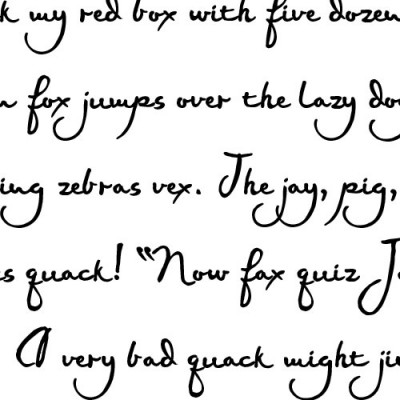 k my red box with five dozen
fox jumps over the lazy do
ing zebras vex. The jay, pig,
s quack! "Now fax quiz J
A very bad quack might ji